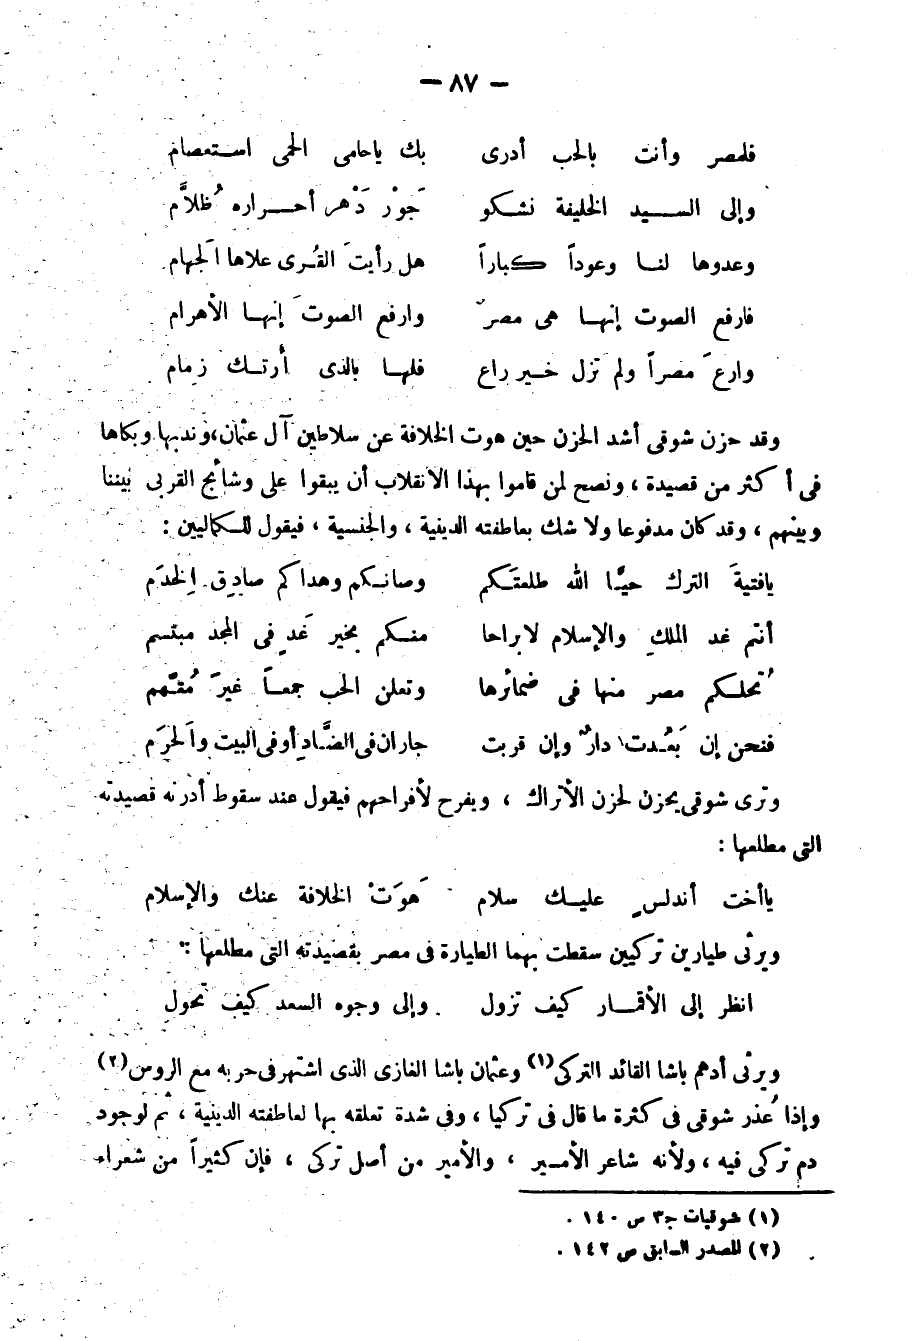 — ٨٧ —
فلمصر وأنت بالحب أدرى بك ياحامى الحمى استعصام
وإلى السيد الخليفة نشكو جَوْر دَهر أحراره ظُلاَّم
وعدوها لنا وعوداً كباراً هل رأيتَ القُرى علاها الجَهام
فارفع الصوت إنها هى مصر وارفع الصوتَ إنها الأهرام
وارعَ مصراً ولم تزل خير راع فلها بالذى أرتك زمام
وقد حزن شوقى أشد الحزن حين هوت الخلافة عن سلاطين آل عثمان، وندبها وبكاها
فى أكثر من قصيدة ، ونصح لمن قاموا بهذا الانقلاب أن يبقوا على وشائج القربى بيننا
وبينهم ، وقد كان مدفوعا ولا شك بعاطفته الدينية ، والجنسية ، فيقول للكماليين :
يافتيةَ الترك حيَّا الله طلعتَكم وصانكم وهداكم صادِق الخدَم
أنتم غد الملكِ والإسلام لابراحا منكم بخير غَدٍ فى المجد مبتسم
تُحلكم مصر منها فى ضمائرها وتعلن الحب جمعاً غيرَ مُتَّهم
فنحن إن بَعُدت دارٌ وإن قربت جاران فى الضَّادِ أو فى البيت والحَرَم
وترى شوقى يحزن لحزن الأتراك ، ويفرح لأفراحهم فيقول عند سقوط أدرنه قصيدته
التى مطلعها :
ياأخت أندلسٍ عليك سلام هَوَتْ الخلافة عنك والإسلام
ويرثى طيارين تركيين سقطت بهما الطيارة فى مصر بقصيدته التى مطلعها :
انظر إلى الأقمار كيف تزول وإلى وجوه السعد كيف تحول
ويرثى أدهم باشا القائد التركى(١) وعثمان باشا الغازى الذى اشتهر فى حربه مع الروس(٢)
وإذا عُذر شوقى فى كثرة ما قال فى تركيا ، وفى شدة تعلقه بها لعاطفته الدينية ، ثم لوجود
دم تركى فيه ، ولأنه شاعر الأمير ، والأمير من أصل تركى ، فإن كثيراً من شعراء
(١) شوقيات ج٣ ص ١٤٠ .
(٢) المصدر السابق ص ١٤٢ .